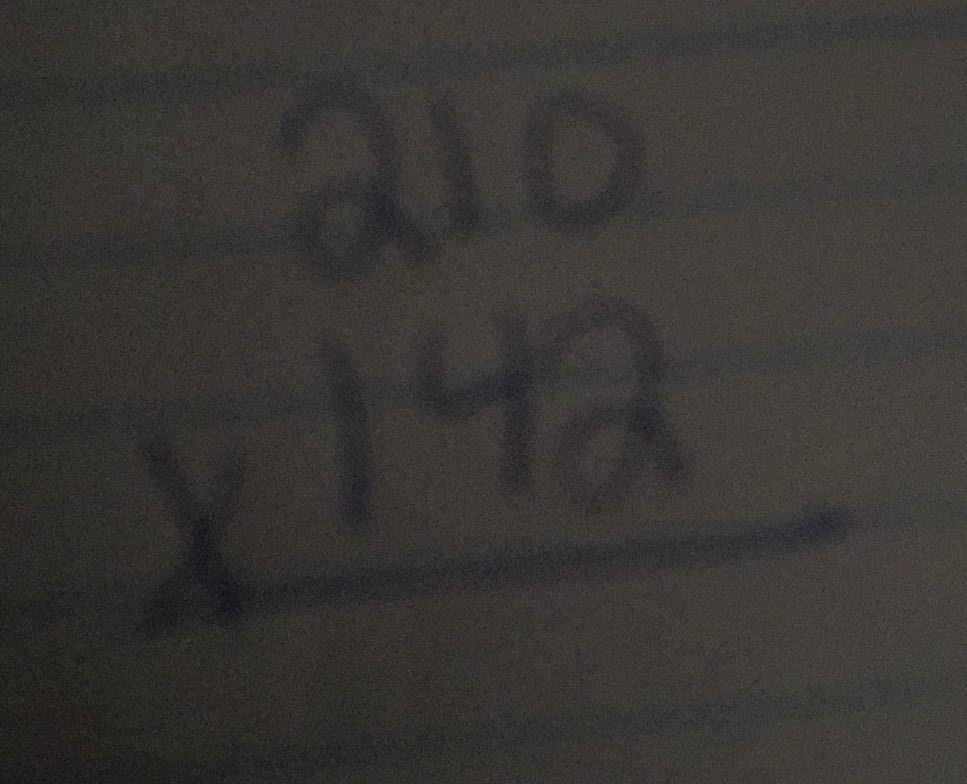 210
x142